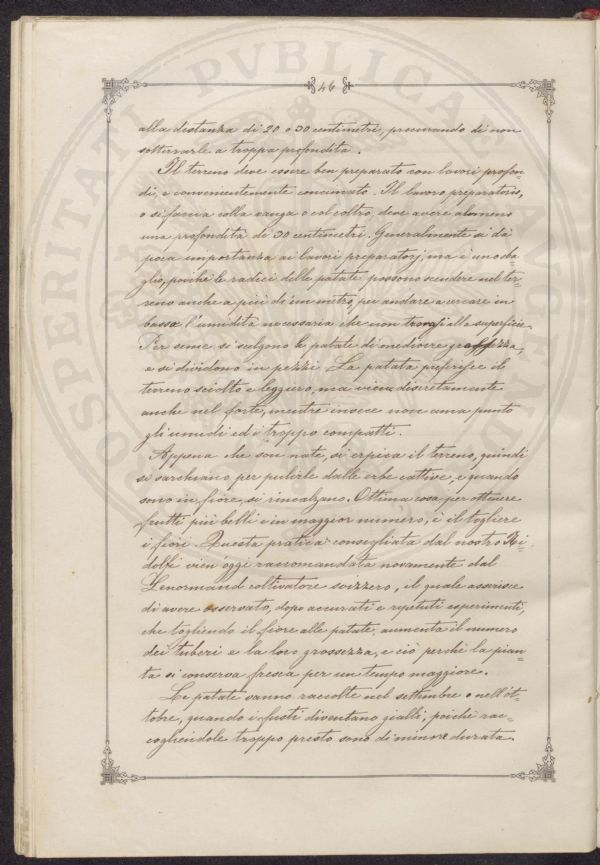 46
alla distanza di 20 o 30 centimetri, procurando di non
sotterrarle a troppa profondità.
Il terreno deve essere ben preparato con lavori profon=
di, e convenientemente concimato. Il lavoro preparatorio,
o si faccia colla vanga o col coltro, deve avere almeno
una profondità di 30 centimetri. Generalmente si dà
poca importanza ai lavori preparatorj, ma è uno sba=
glio, poichè le radici delle patate possono scendere nel ter=
reno anche a più di un metro, per andare a cercare in
basso l'umidità necessaria che non trovasi alla superficie.
Per seme si scelgono le patate di mediocre grossezza,
e si dividono in pezzi. La patata preferisce il
terreno sciolto e leggiero, ma viene discretamente
anche nel forte, mentre invece non ama punto
gli umidi ed i troppo compatti.
Appena che son nate, si erpica il terreno, quindi
si sarchiano per pulirle dalle erbe cattive, e quando
sono in fiore, si rincalzano. Ottima cosa per ottenere
frutti più belli e in maggior numero, è il togliere
i fiori. Questa pratica consigliata dal nostro Ri=
dolfi vien oggi raccomandata novamente dal
Lenormand coltivatore svizzero, il quale asserisce
di avere osservato, dopo accurati e repetuti esperimenti,
che togliendo il fiore alle patate, aumenta il numero
dei tuberi e la loro grossezza, e ciò perchè la pian=
ta si conserva fresca per un tempo maggiore.
Le patate vanno raccolte nel settembre o nell'ot=
tobre, quando i fusti diventano gialli, poichè rac=
cogliendole troppo presto sono di minore durata.
PROSPERITATI PVBLICAE AVGENDAE